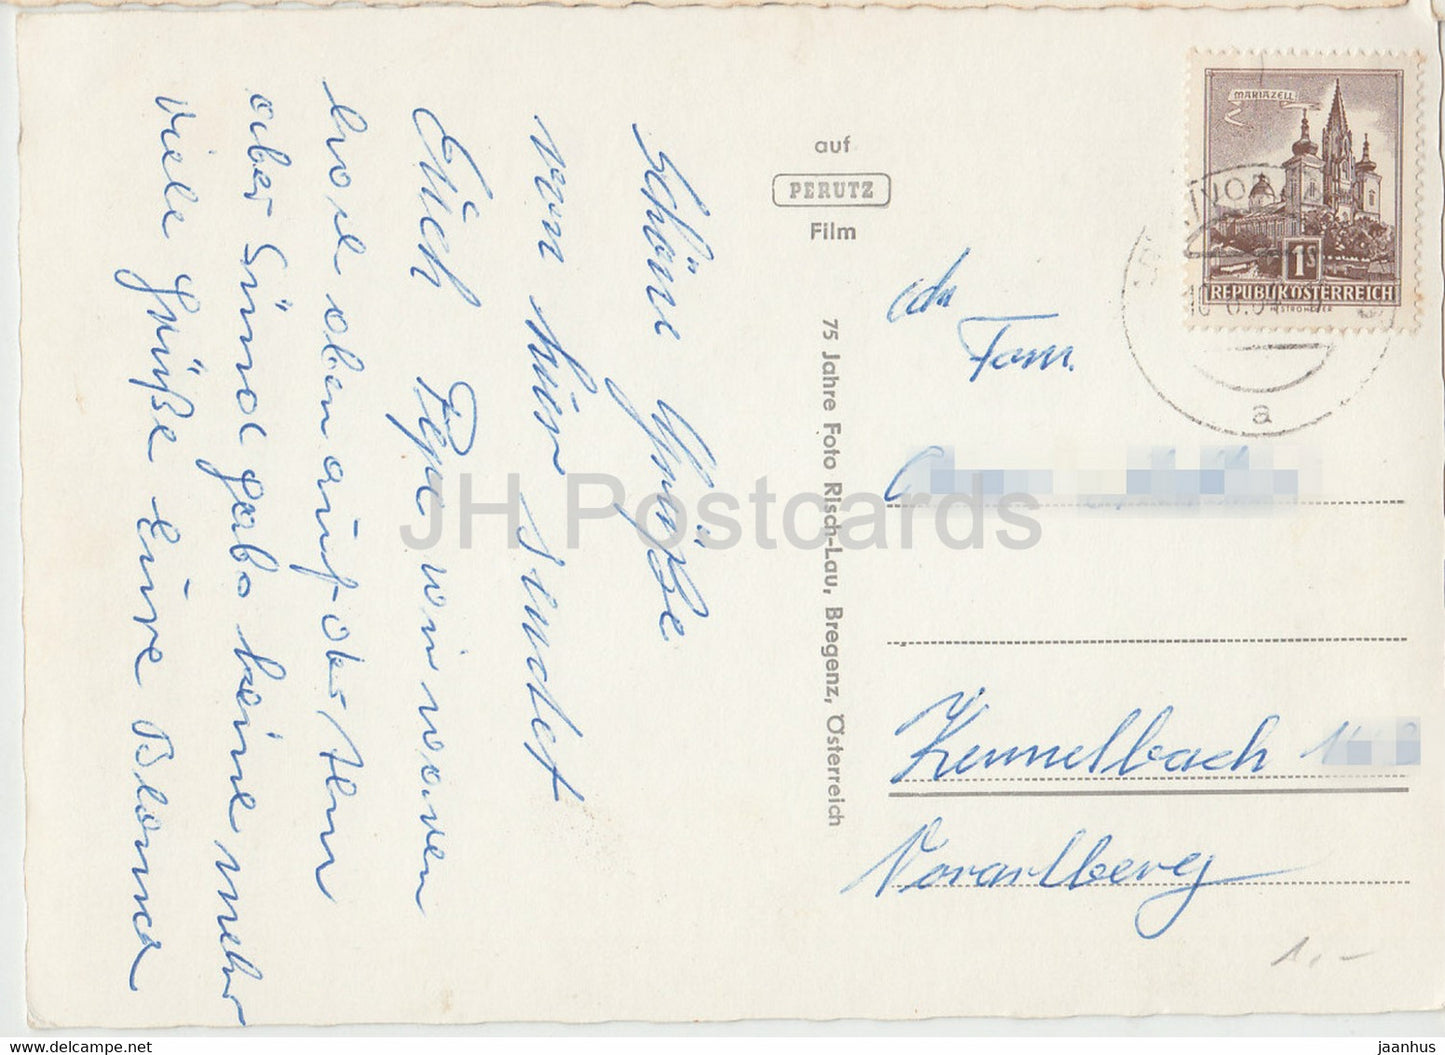 Schöne Grüße
von hier sendet
Euch Pepe wir waren
oben auf der Alm
aber Sind gabs keine mehr
viele Grüße eure Blanca
auf
PERUTZ
Film
75 Jahre Foto Risch-Lau, Bregenz, Österreich
MARIAZELL
1S
REPUBLIK ÖSTERREICH
a
An
Fam.
Kennelbach
Vorarlberg
1.-
JH Postcards
www.delcampe.net
jaanhus